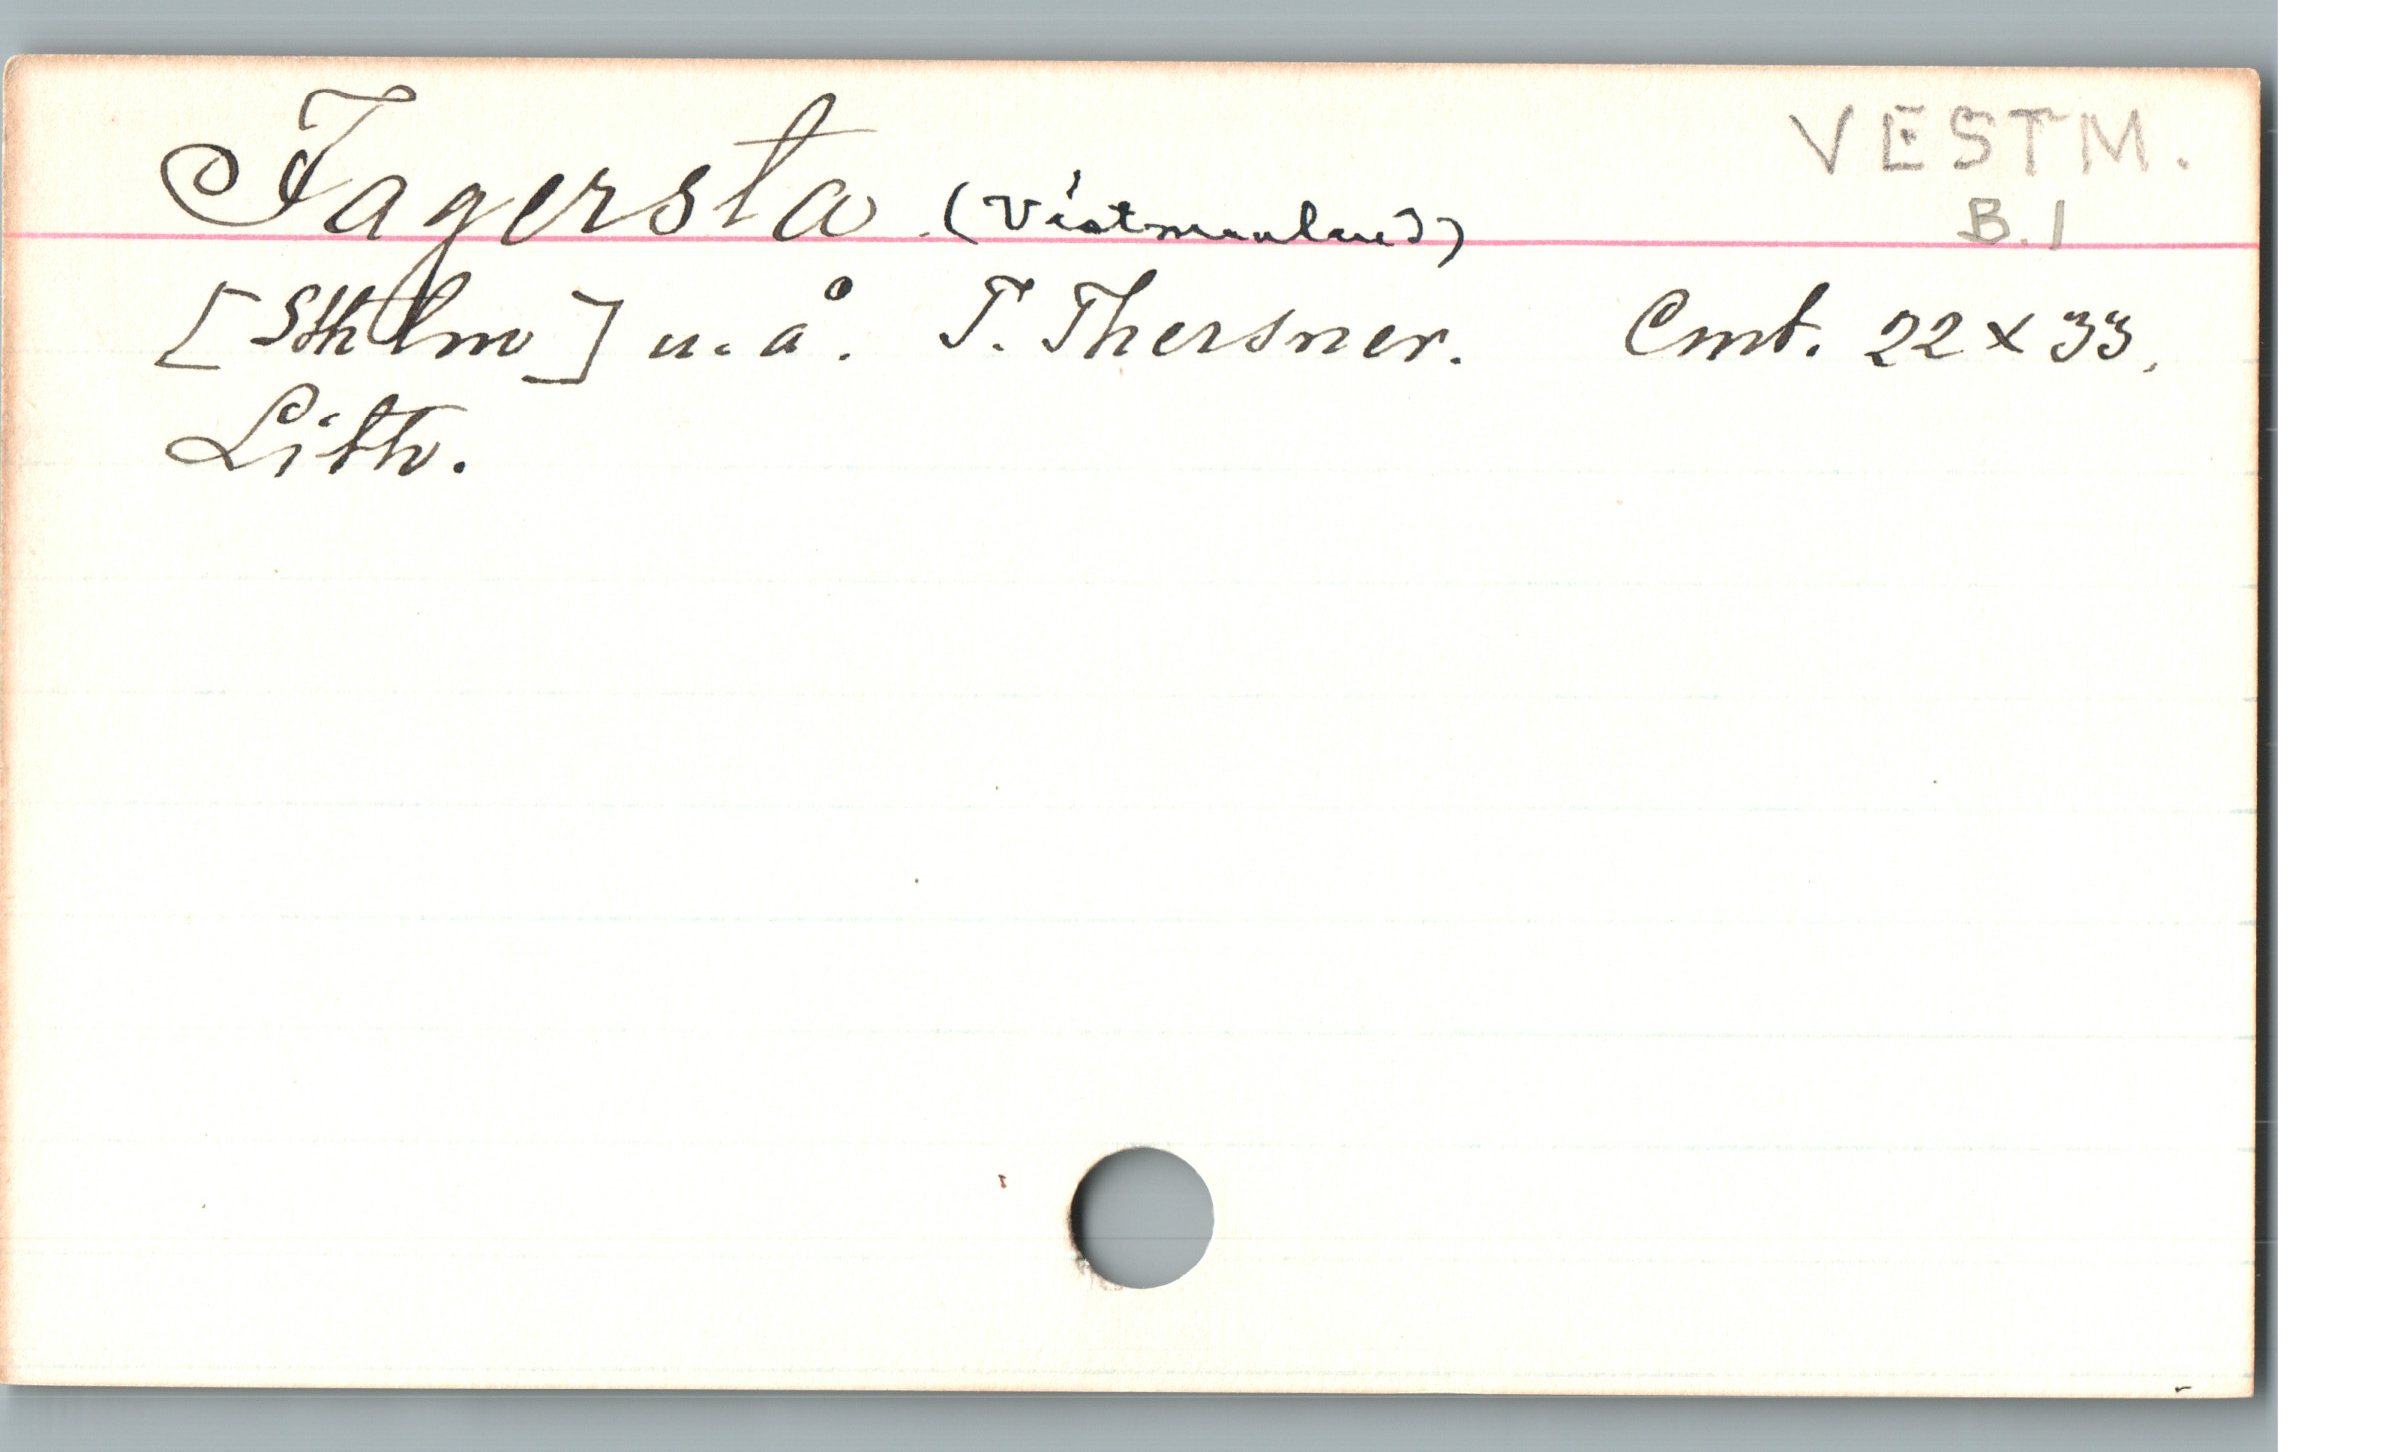 Fagersta. (Västmanland) VESTM.
B.1
[Sthlm] u.å. T. Thersner. Cmt. 22 x 33.
Lith.